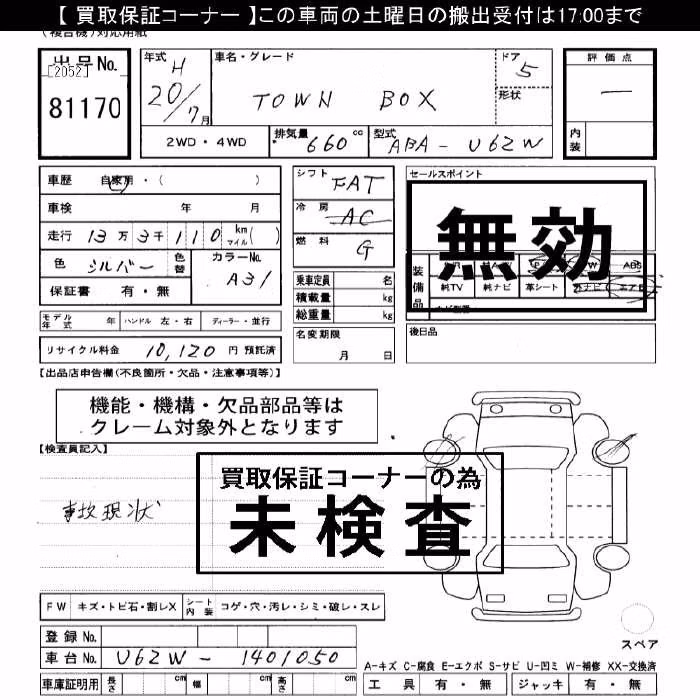 【 買取保証コーナー 】この車両の土曜日の搬出受付は17:00まで
(複合機)対応用紙
出品No.
[2052]
81170
年式 H 20/7月
車名・グレード
TOWN BOX
ドア 5
形状
評価点
―
内装
2WD・4WD
排気量 660 cc
型式 ABA-U62W
車歴 自家用・( )
車検 年 月
走行 13万3千110 km マイル( )
色 シルバー 色替
カラーNo. A31
保証書 有・無
モデル年式 年
ハンドル 左・右
ディーラー・並行
リサイクル料金 10,120 円 預託済
シフト FAT
冷房 AC
燃料 G
乗車定員 名
積載量 kg
総重量 kg
名変期限
月 日
セールスポイント
無効
装備品
ABS
純TV 純ナビ 革シート
エアB
後日品
【出品店申告欄(不良箇所・欠品・注意事項等)】
機能・機構・欠品部品等は
クレーム対象外となります
【検査員記入】
買取保証コーナーの為
未検査
事故現状
FW キズ・トビ石・割レX
シート内装 コゲ・穴・汚レ・シミ・破レ・スレ
登録No.
車台No. U62W-1401050
車庫証明用 長さ cm 幅 cm 高さ cm
スペア
A-キズ C-腐食 E-エクボ S-サビ U-凹ミ W-補修 XX-交換済
工具 有・無 ジャッキ 有・無